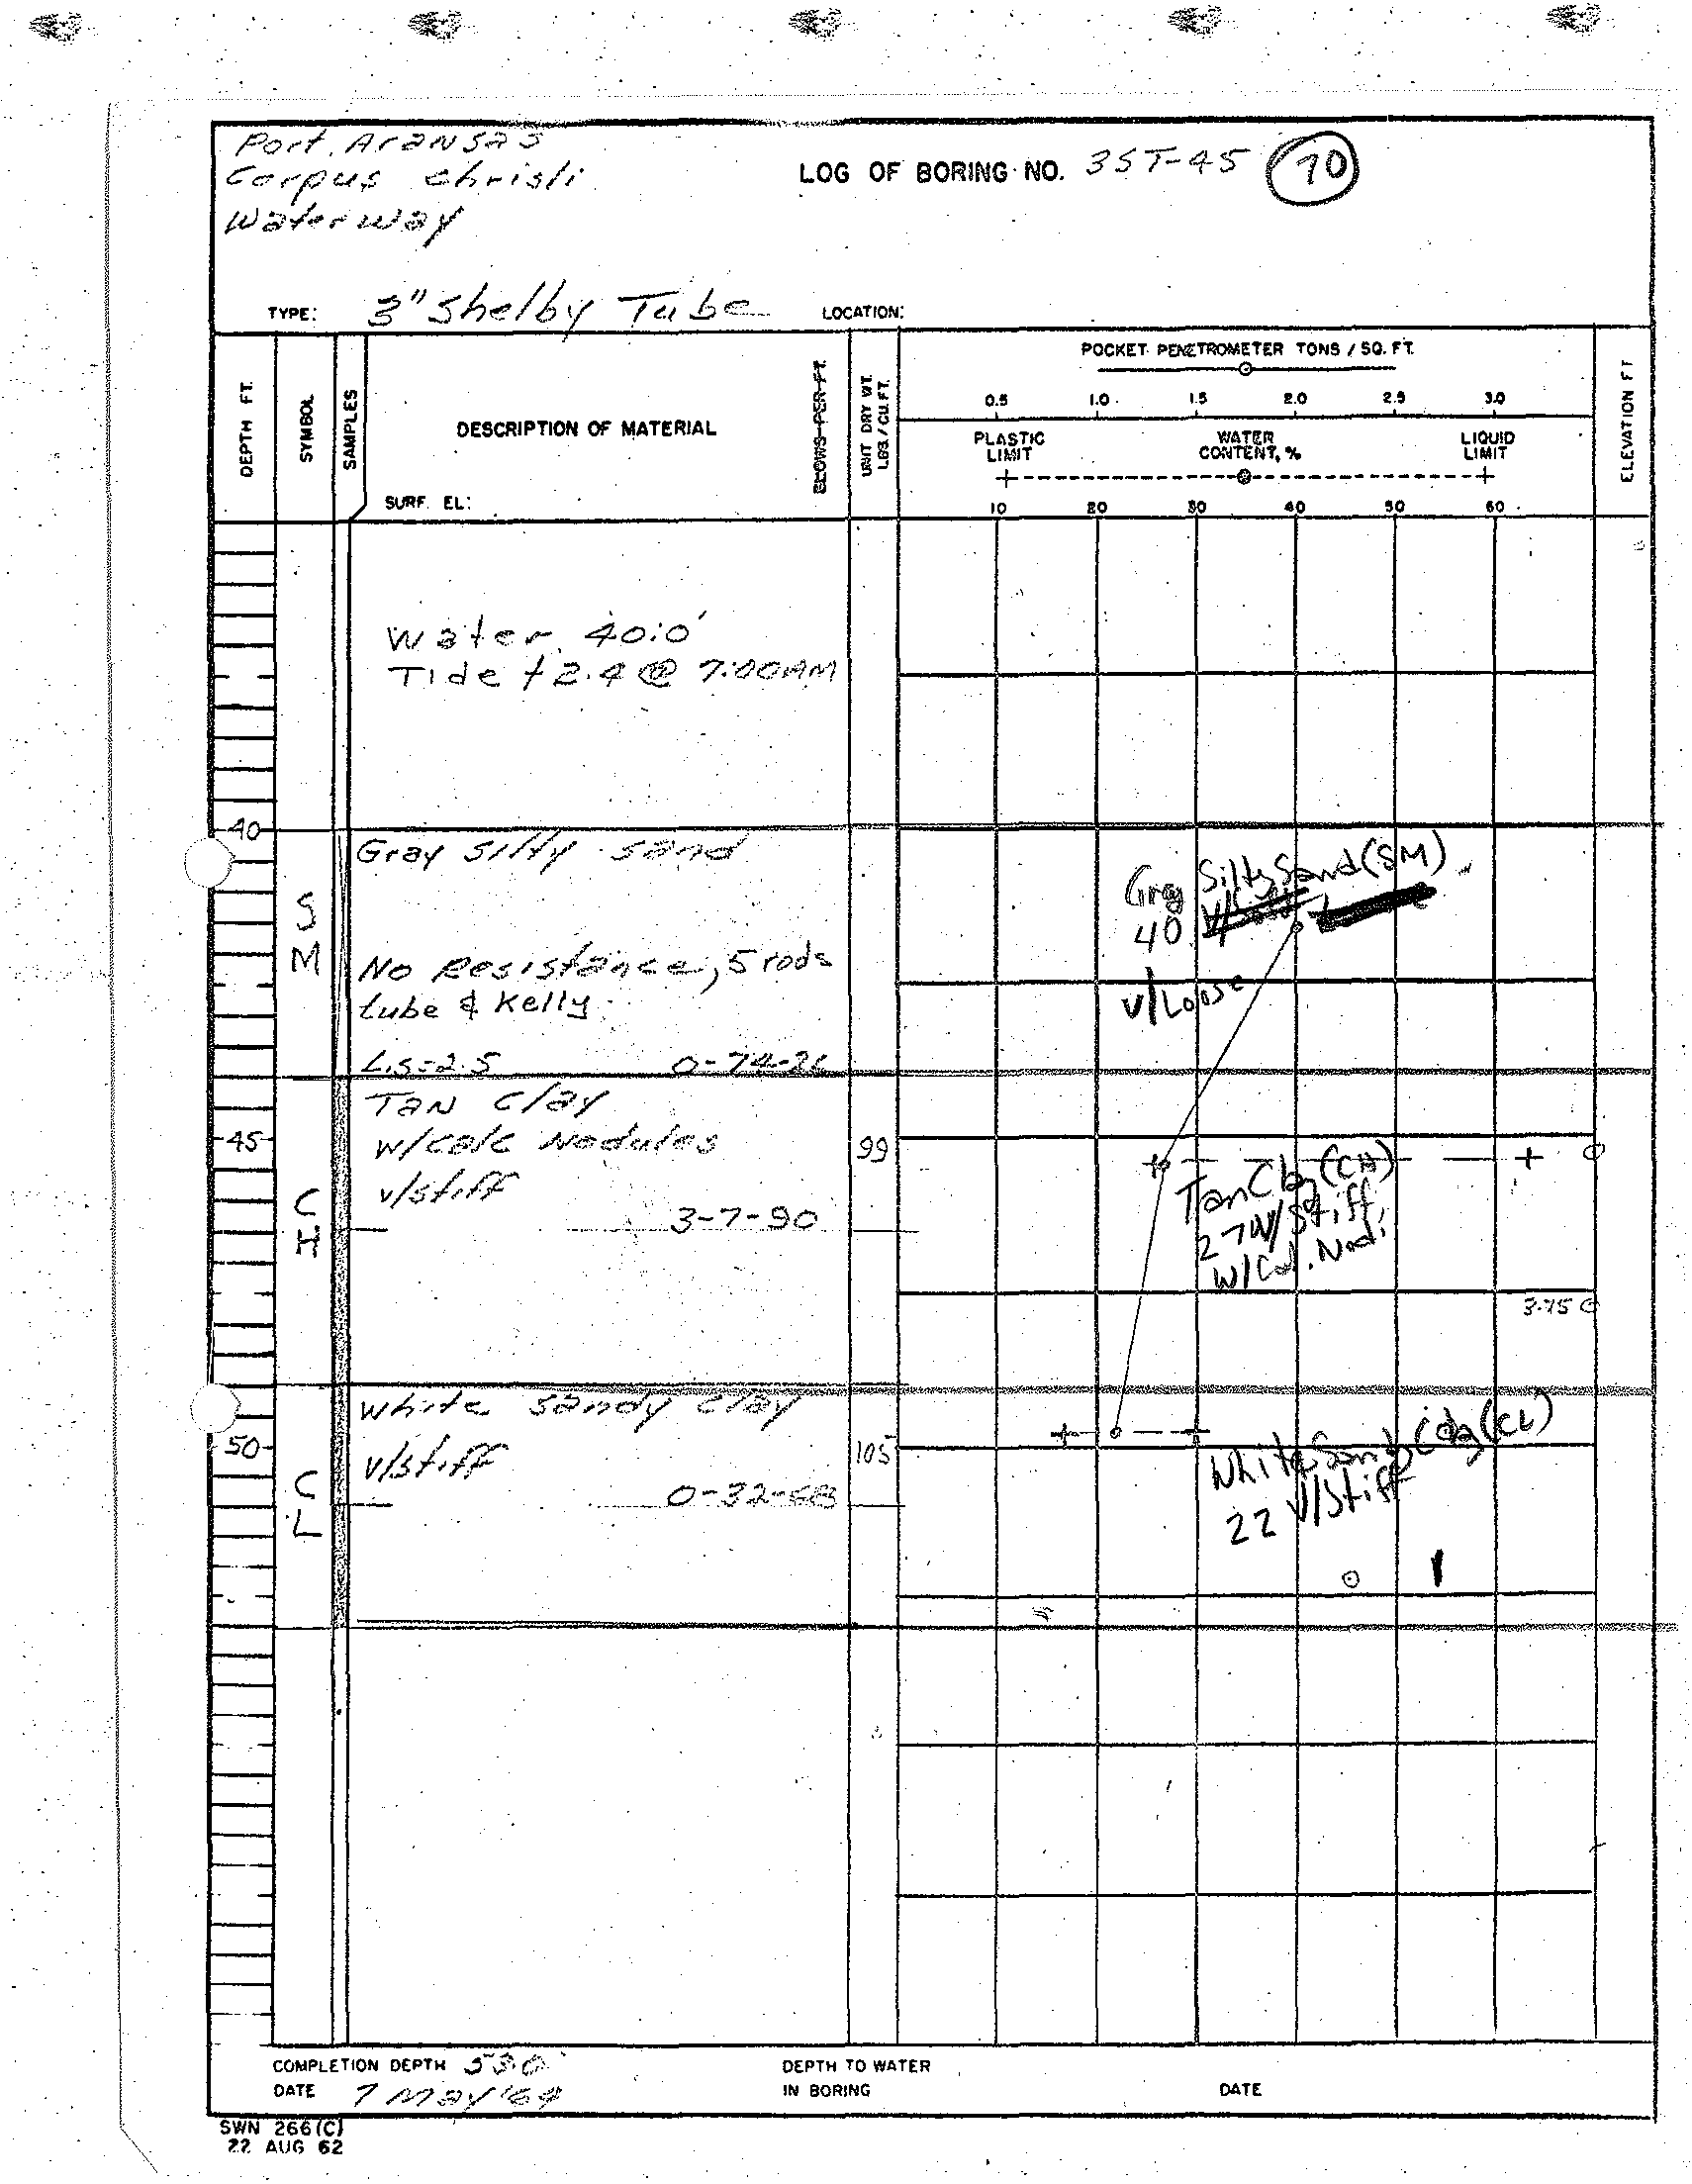 Port Aransas
Corpus Christi
Waterway
LOG OF BORING NO. 3ST-45 70
TYPE: 3" Shelby Tube LOCATION:
DEPTH FT.
SYMBOL
SAMPLES
DESCRIPTION OF MATERIAL
SURF. EL:
BLOWS PER FT.
UNIT DRY WT.
LBS./CU.FT.
POCKET PENETROMETER TONS / SQ. FT.
0.5 1.0 1.5 2.0 2.5 3.0
PLASTIC LIMIT
WATER CONTENT, %
LIQUID LIMIT
10 20 30 40 50 60
ELEVATION FT
Water 40.0'
Tide +2.4 @ 7:00AM
40
Gray silty sand
Gray Silty Sand (SM)
40
SM
No Resistance, 5 rods
tube & Kelly
v/Loose
L.S=2.5 0-74-26
Tan clay
45
w/calc Nodules
99
v/stiff
Tan Clay (CH)
27 V/Stiff,
W/Cal. Nod.
CH
3-7-90
3.75
White sandy clay
50
v/stiff
105
White Sandy Clay (CL)
22 V/Stiff
CL
0-32-68
COMPLETION DEPTH 53.0'
DATE 7 May '64
DEPTH TO WATER
IN BORING
DATE
SWN 266(C)
22 AUG 62